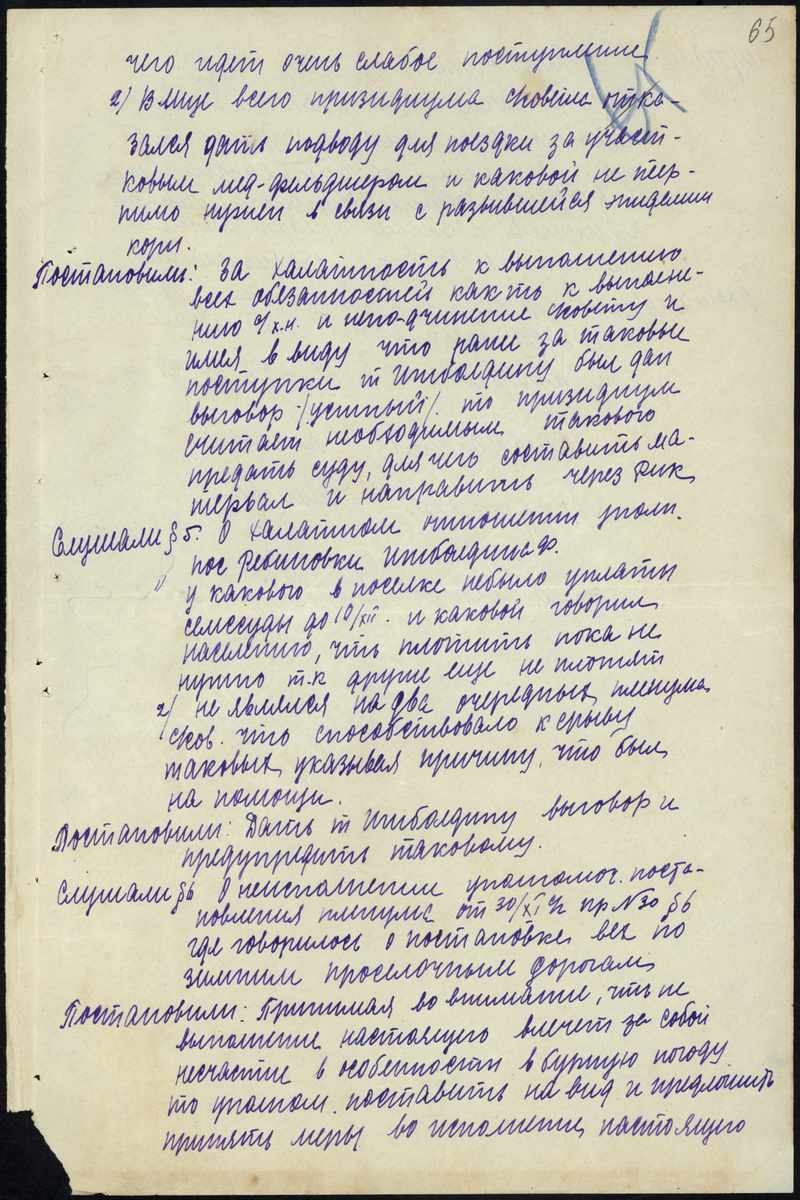 65
чего идет очень слабое поступление
2/ В лице всего призидиума с/совета отка-
зался дать подводу для поездки за участ-
ковым мед-фельдшером и каковой не тер-
пимо нужен в связи с развившейся эпидемии
кори.
Постановили: За халатность к выполнению
всех обязанностей как то к выполне-
нию с/х.н. и непо-дчинение с/совету и
имея в виду что ранее за таковые
поступки т Ишболдину был дан
выговор /устный/. то призидиум
считает необходимым такового
предать суду, для чего составить ма-
терьал и направить через Рик
Слушали § 5. О халатном отношении уполн.
пос Рябиновки Ишболдина Ф.
у какового в поселке небыло уплаты
семссуды до 10/XII. и каковой говорил
населению, что плотить пока не
нужно т.к другие еще не плотят
2/ не являлся на два очередных пленума
с/сов. что способствовало к срыву
таковых, указывая причину, что был
на помощи.
Постановили: Дать т Ишболдину выговор и
предупредить таковому.
Слушали § 6 О неисполнении уполномоч. поста-
новления пленума от 30/XI с/г пр № 30 § 6
где говорилось о постановке вех по
зимним проселочным дорогам
Постановили: Принимая во внимание, что не
выполнение настоящего влечет за собой
несчастие в особенности в бурную погоду
то уполном. поставить на вид и предложить
принять меры во исполнение настоящего